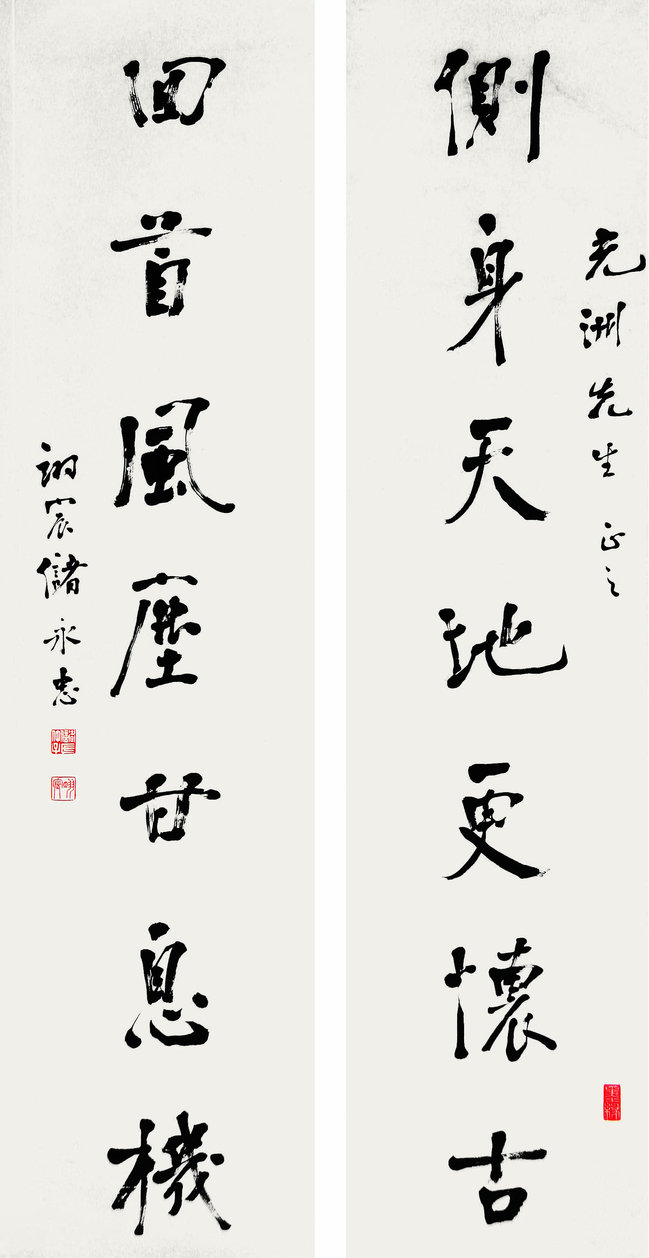 洲先生正之
側身天地更懷古
回首風塵甘息機
宸儲永